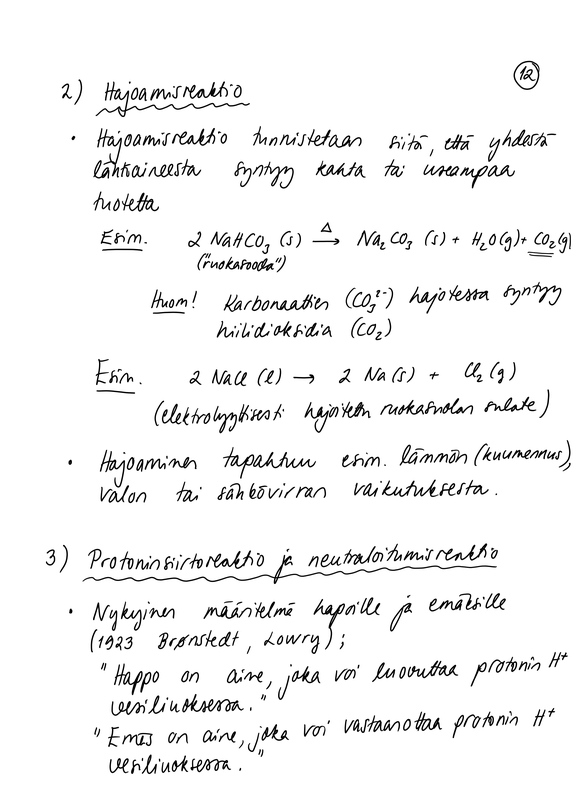 12
2) Hajoamisreaktio
• Hajoamisreaktio tunnistetaan siitä, että yhdestä
lähtöaineesta syntyy kahta tai useampaa
tuotetta
Esim. 2 NaHCO₃ (s) →Δ Na₂CO₃ (s) + H₂O(g) + CO₂(g)
("ruokasooda")
Huom! Karbonaattien (CO₃²⁻) hajotessa syntyy
hiilidioksidia (CO₂)
Esim. 2 NaCl (l) → 2 Na(s) + Cl₂(g)
(elektrolyyttisesti hajoitetun ruokasuolan sulate)
• Hajoaminen tapahtuu esim. lämmön (kuumennus),
valon tai sähkövirran vaikutuksesta.
3) Protoninsiirtoreaktio ja neutraloitumisreaktio
• Nykyinen määritelmä hapoille ja emäksille
(1923 Brønsted, Lowry);
"Happo on aine, joka voi luovuttaa protonin H⁺
vesiliuoksessa."
"Emäs on aine, joka voi vastaanottaa protonin H⁺
vesiliuoksessa."